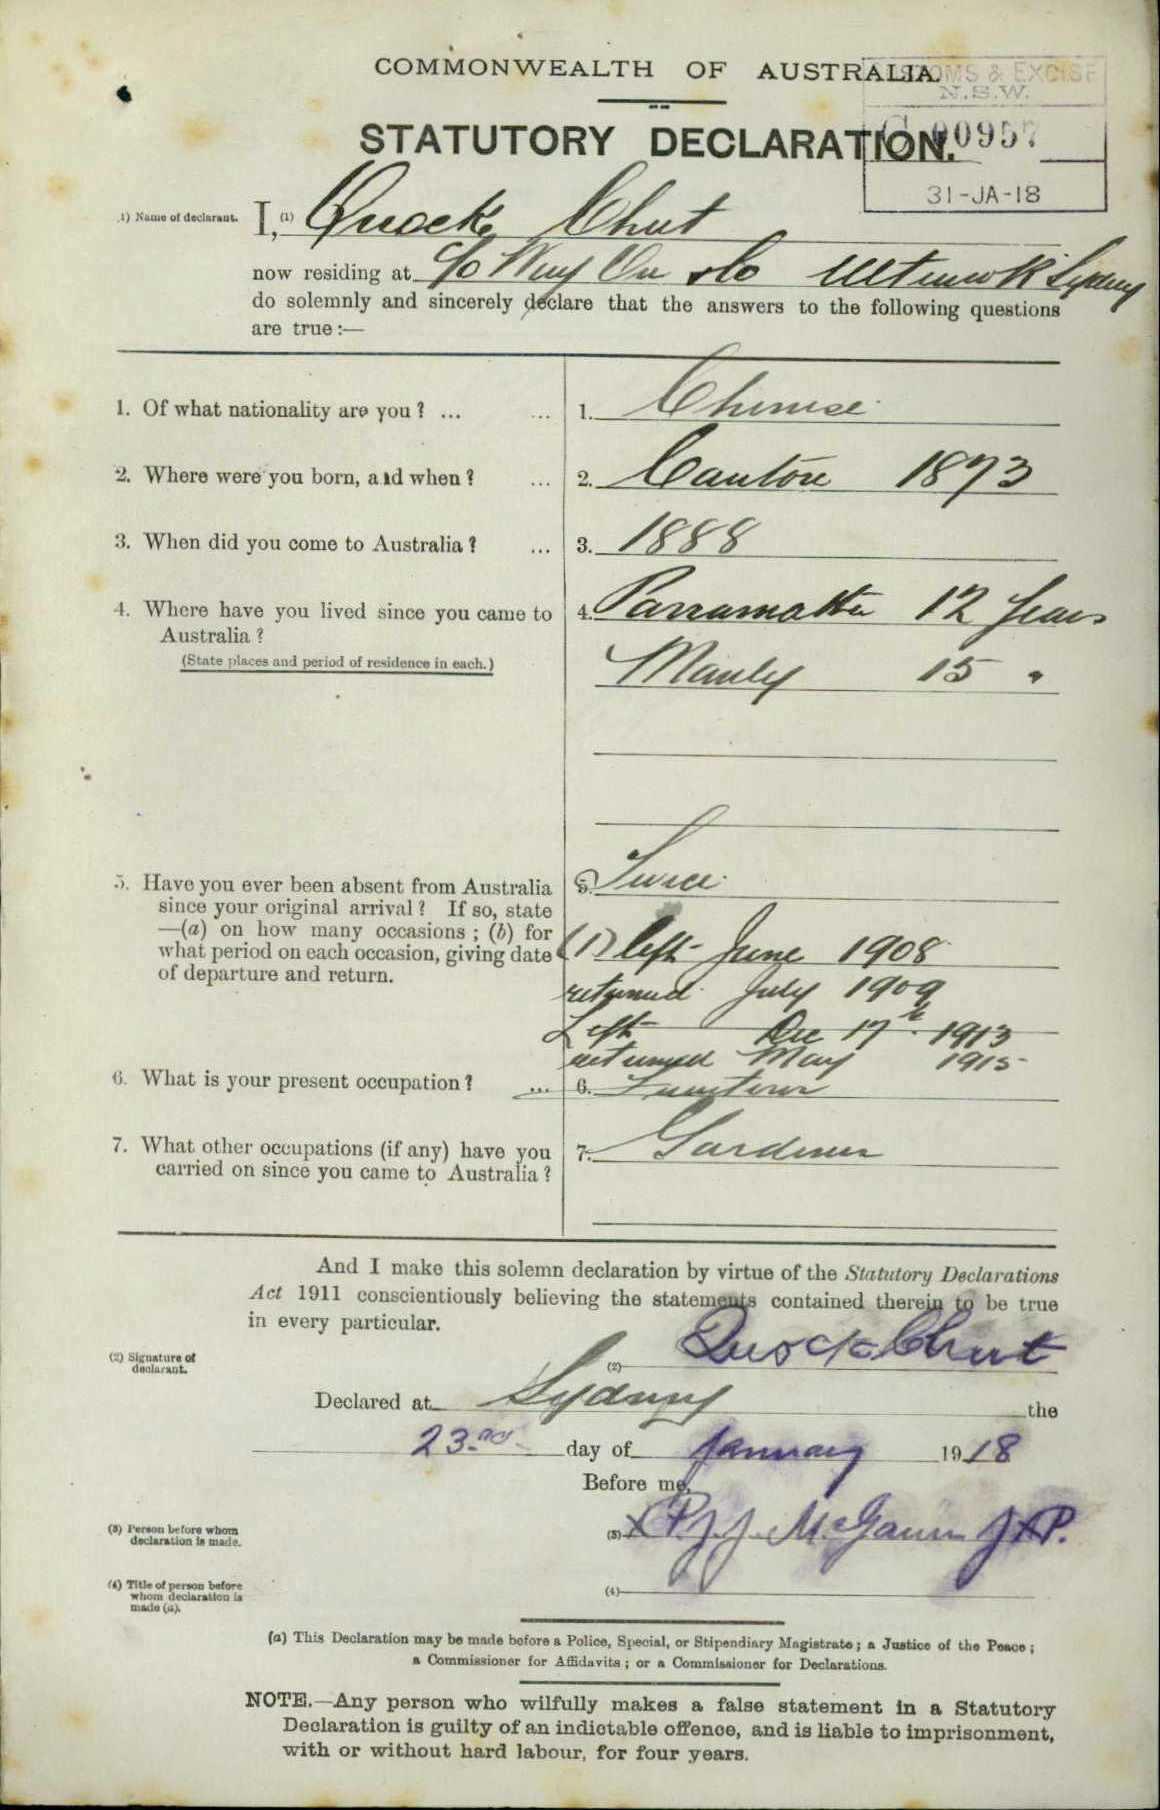 COMMONWEALTH OF AUSTRALIA.
CUSTOMS & EXCISE
N.S.W.
STATUTORY DECLARATION.
C 00957
31-JA-18
(1) Name of declarant.
I, (1) Quock Chut
now residing at C/o Wing On & Co Sydney
do solemnly and sincerely declare that the answers to the following questions
are true :—
1. Of what nationality are you ? ... ... 1. Chinese
2. Where were you born, and when ? ... 2. Canton 1873
3. When did you come to Australia ? ... 3. 1888
4. Where have you lived since you came to 4. Parramatta 12 Years
Australia ?
(State places and period of residence in each.)
Manly 15 "
5. Have you ever been absent from Australia 5. Twice
since your original arrival ? If so, state
—(a) on how many occasions ; (b) for
what period on each occasion, giving date
of departure and return.
(1) left June 1908
returned July 1909
Left Dec 17th 1913
returned May 1915
6. What is your present occupation ? ... 6.
7. What other occupations (if any) have you 7. Gardener
carried on since you came to Australia ?
And I make this solemn declaration by virtue of the Statutory Declarations
Act 1911 conscientiously believing the statements contained therein to be true
in every particular.
(2) Signature of
declarant.
(2) Quock Chut
Declared at Sydney the
23rd day of January 1918
Before me,
(3) Person before whom
declaration is made.
(3) McGann J.P.
(4) Title of person before
whom declaration is
made (a).
(4)
(a) This Declaration may be made before a Police, Special, or Stipendiary Magistrate ; a Justice of the Peace ;
a Commissioner for Affidavits ; or a Commissioner for Declarations.
NOTE.—Any person who wilfully makes a false statement in a Statutory
Declaration is guilty of an indictable offence, and is liable to imprisonment,
with or without hard labour, for four years.